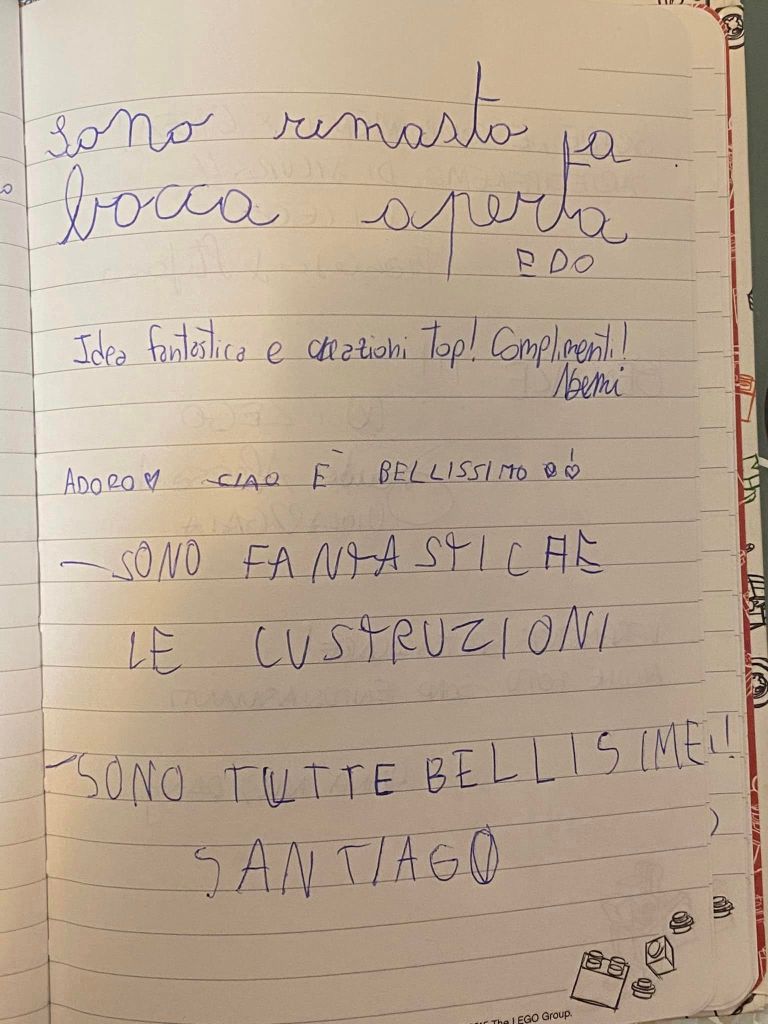 Sono rimasto a
bocca aperta
EDO
Idea fantastica e creazioni Top! Complimenti!
Noemi
ADORO♡ CIAO È BELLISSIMO ♡♡
—SONO FANTASTICHE
LE CUSTRUZIONI
—SONO TUTTE BELLISIME!!
SANTIAGO
The LEGO Group.